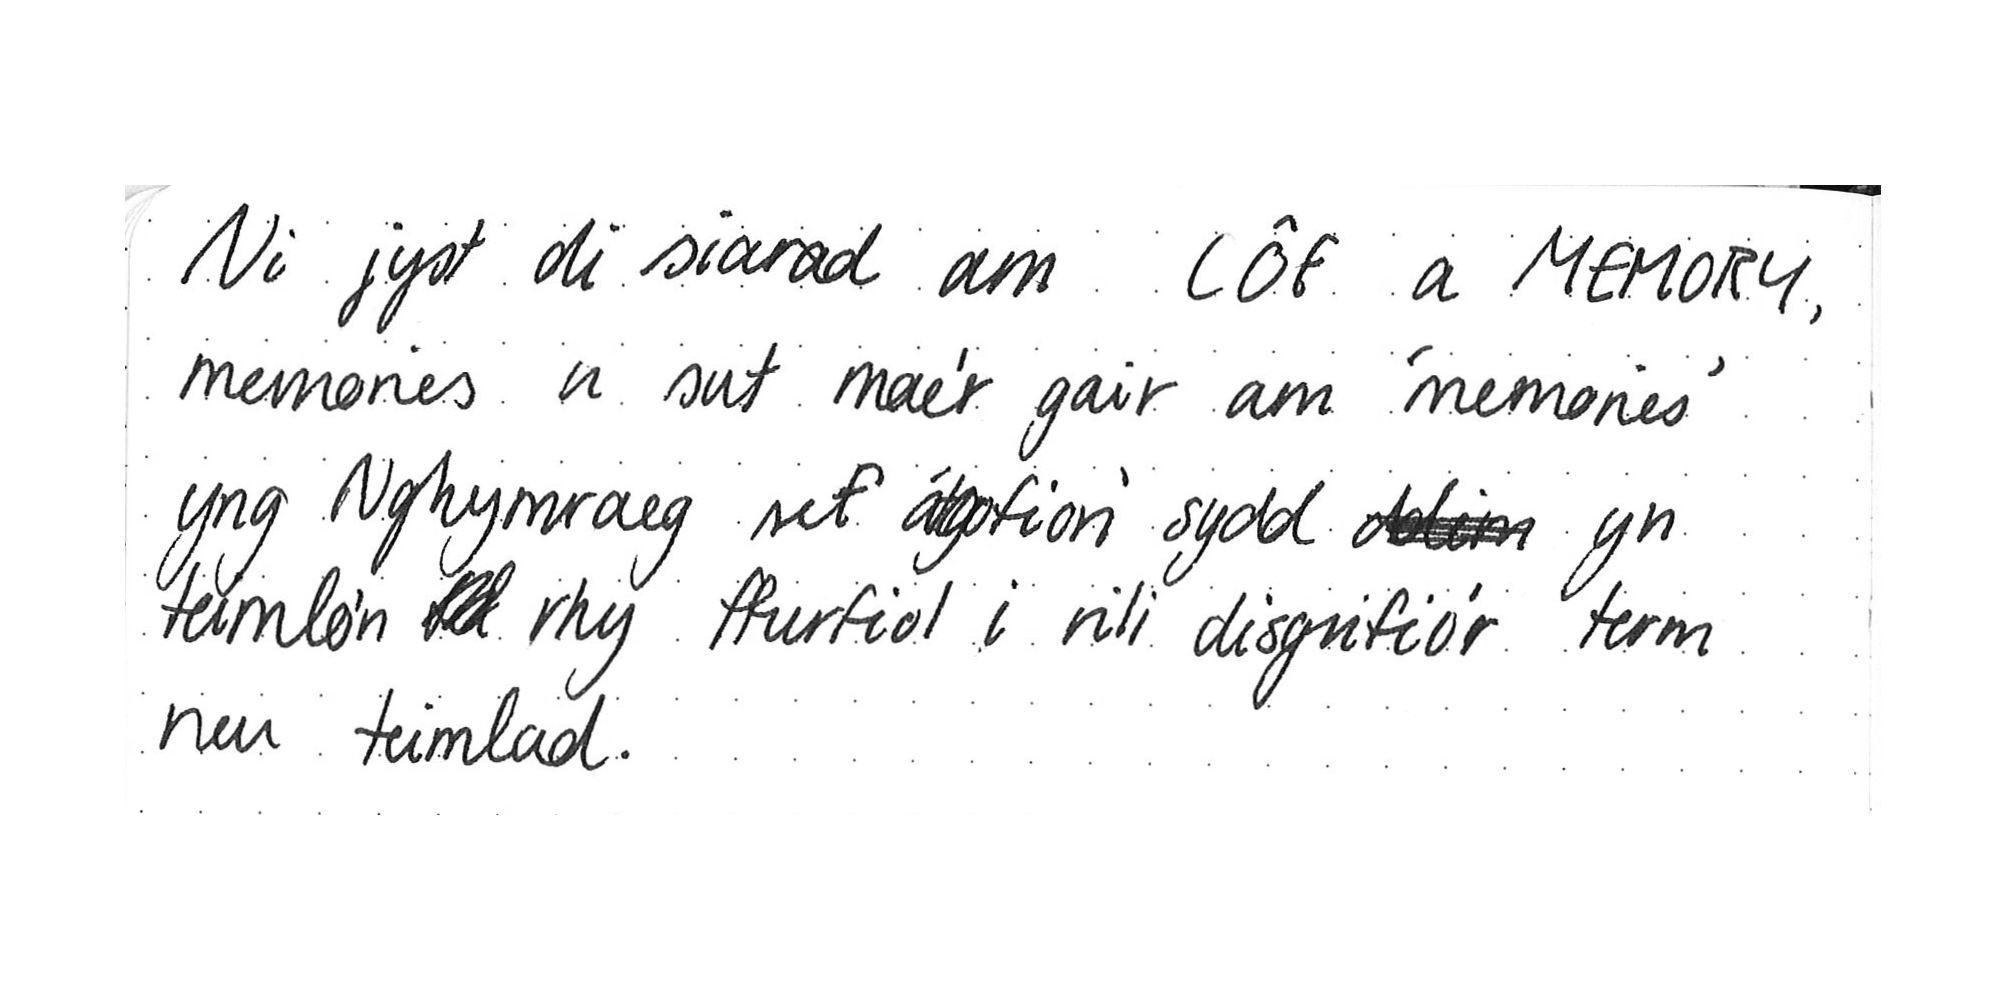 Ni jyst di siarad am CÔF a MEMORY,
memories n sut mae'r gair am 'memories'
yng Nghymraeg sef 'atgofion' sydd yn
teimlo'n rhy ffurfiol i rili disgrifio'r term
neu teimlad.